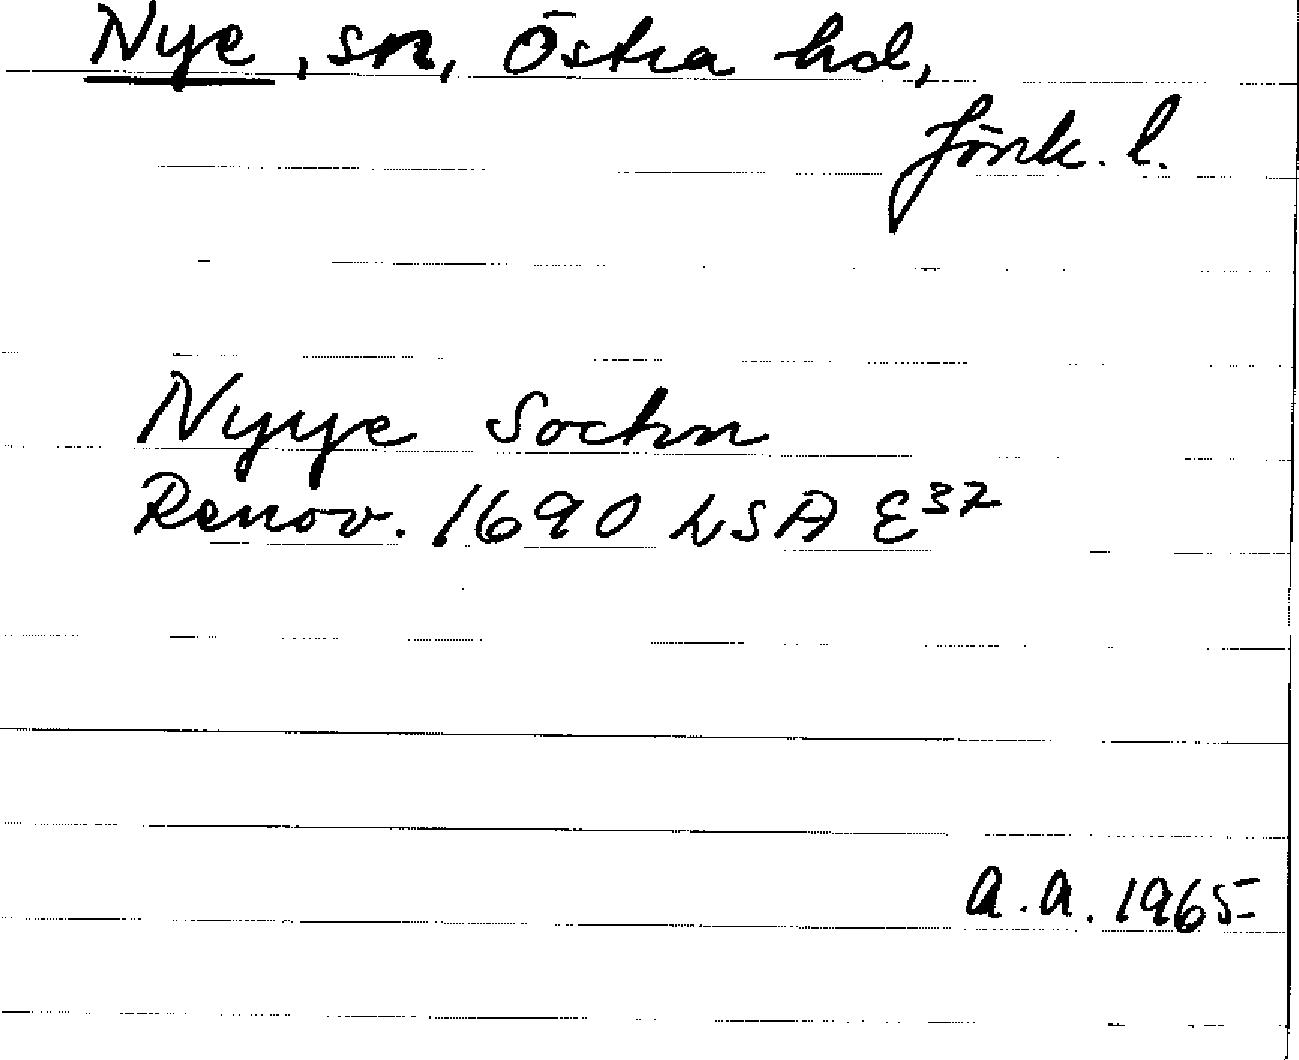 Nye, sn, Östra hd,
Jönk. l.
Nyye Sochn
Renov. 1690 LSA E37
A.A. 1965